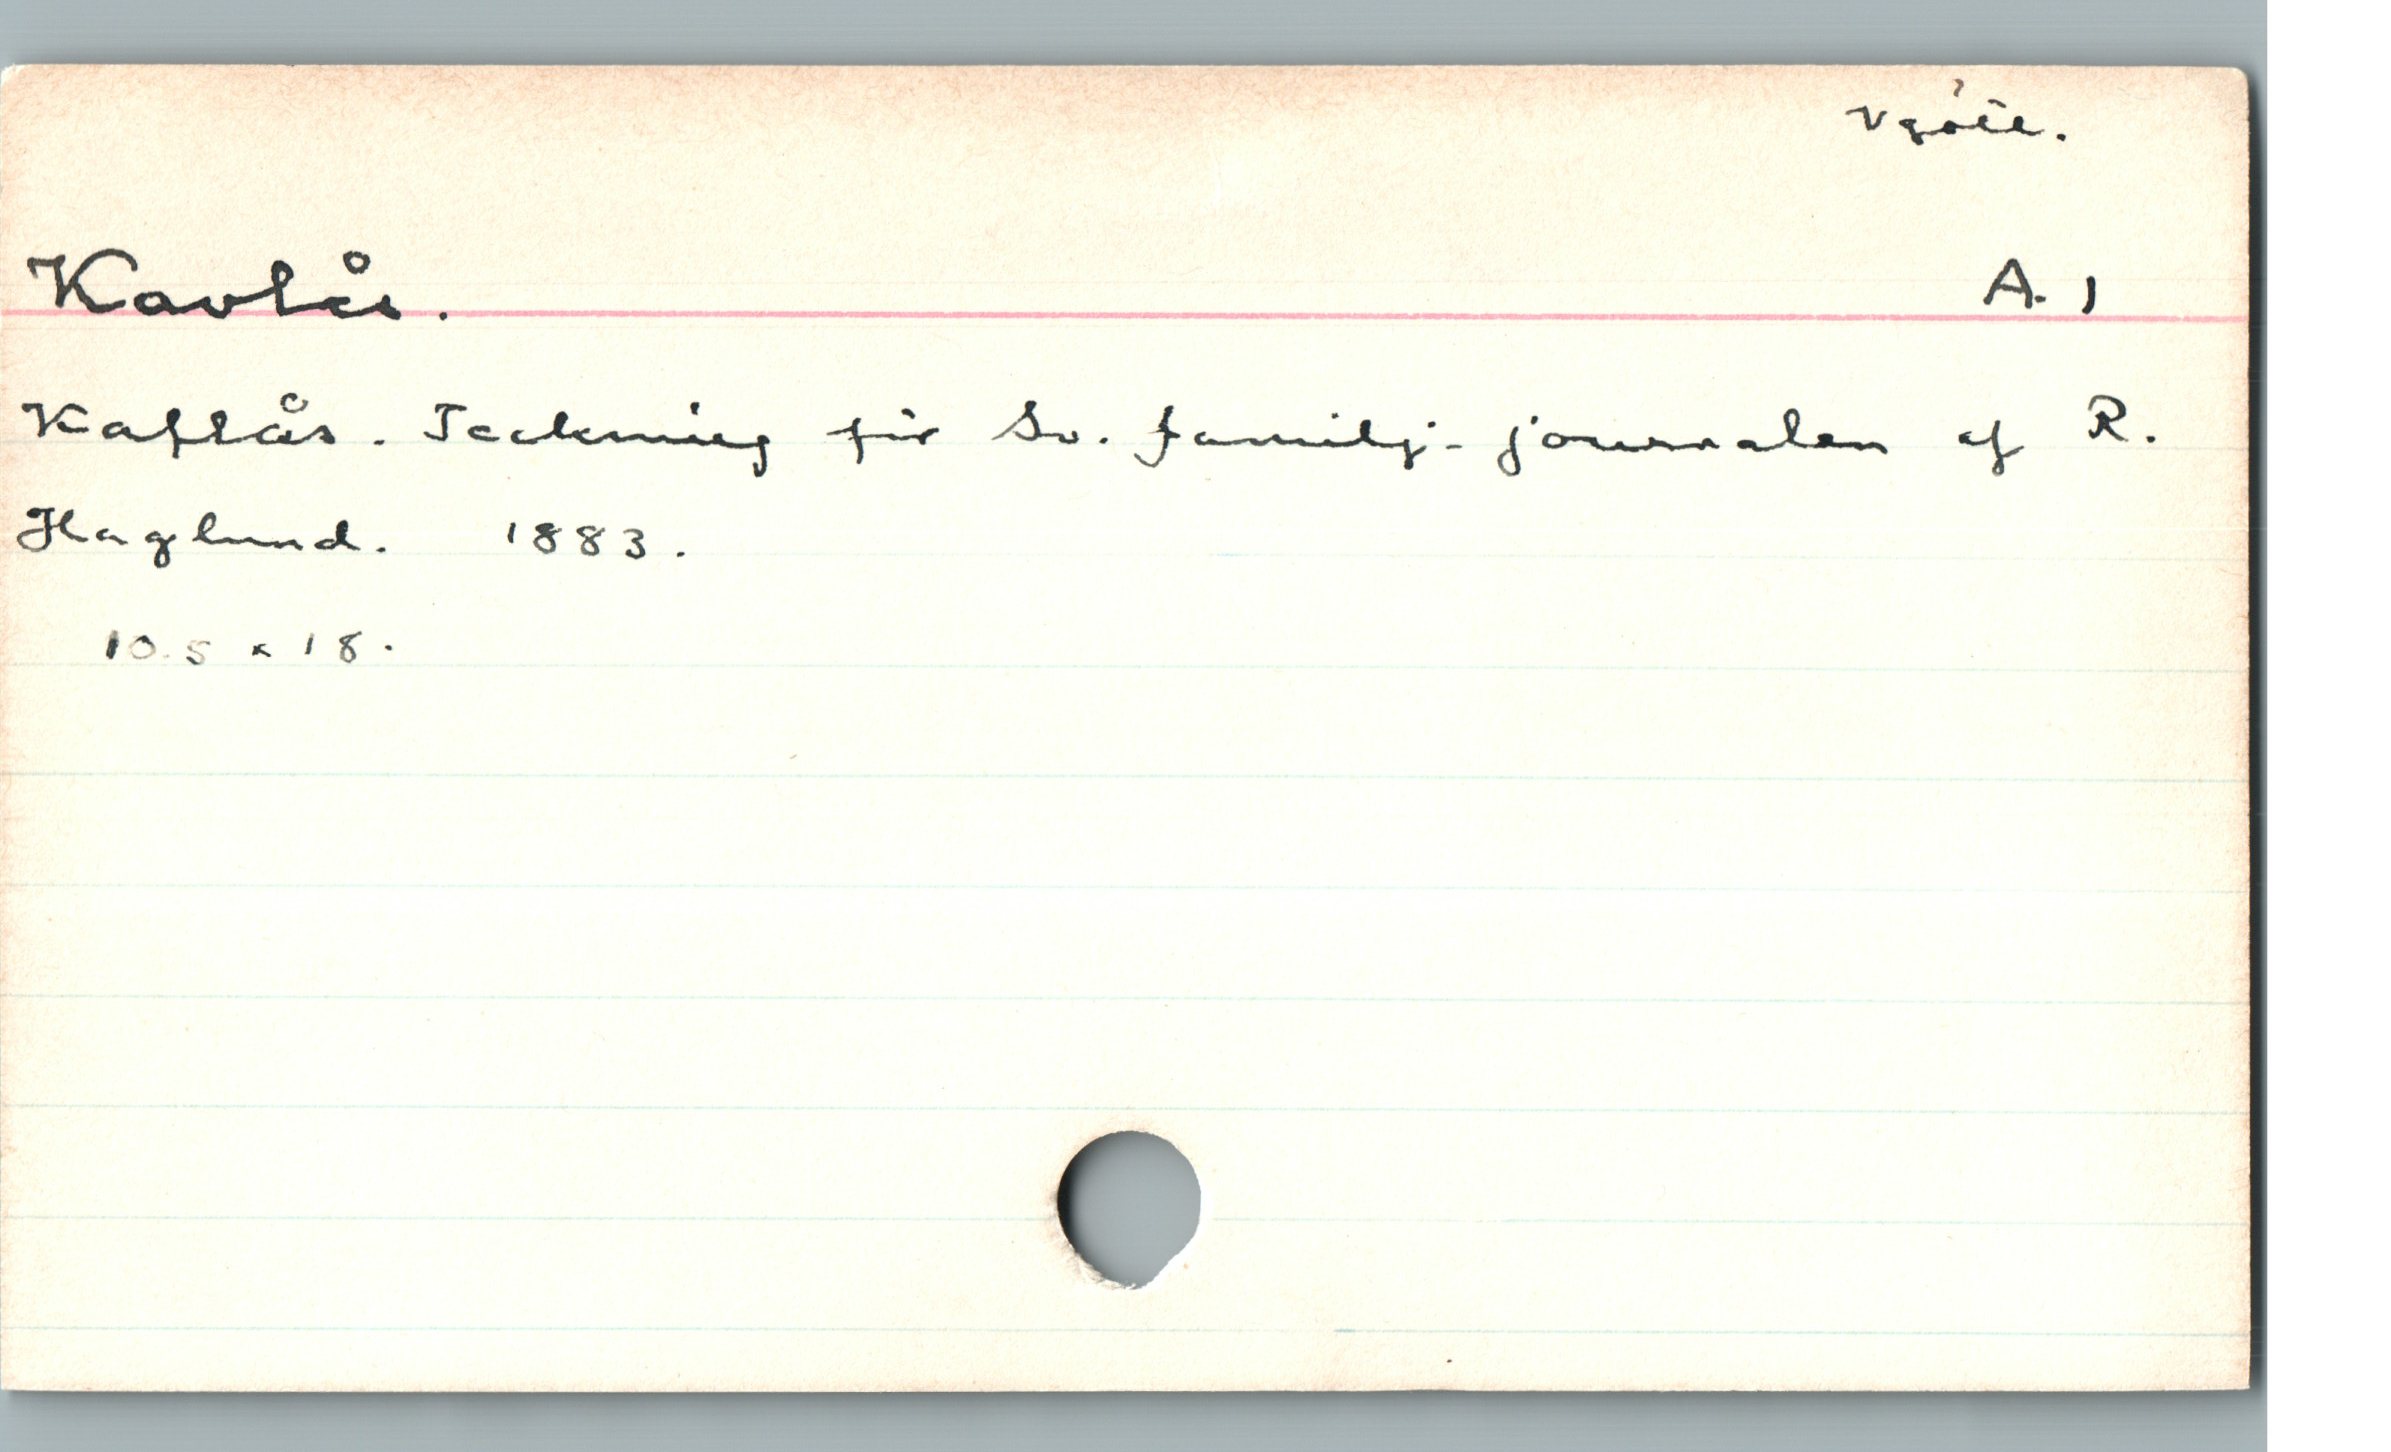 Vgötl.
Kavlås. A. 1
Kaflås. Teckning för Sv. familj-journalen af R.
Haglund. 1883.
10.5 x 18.